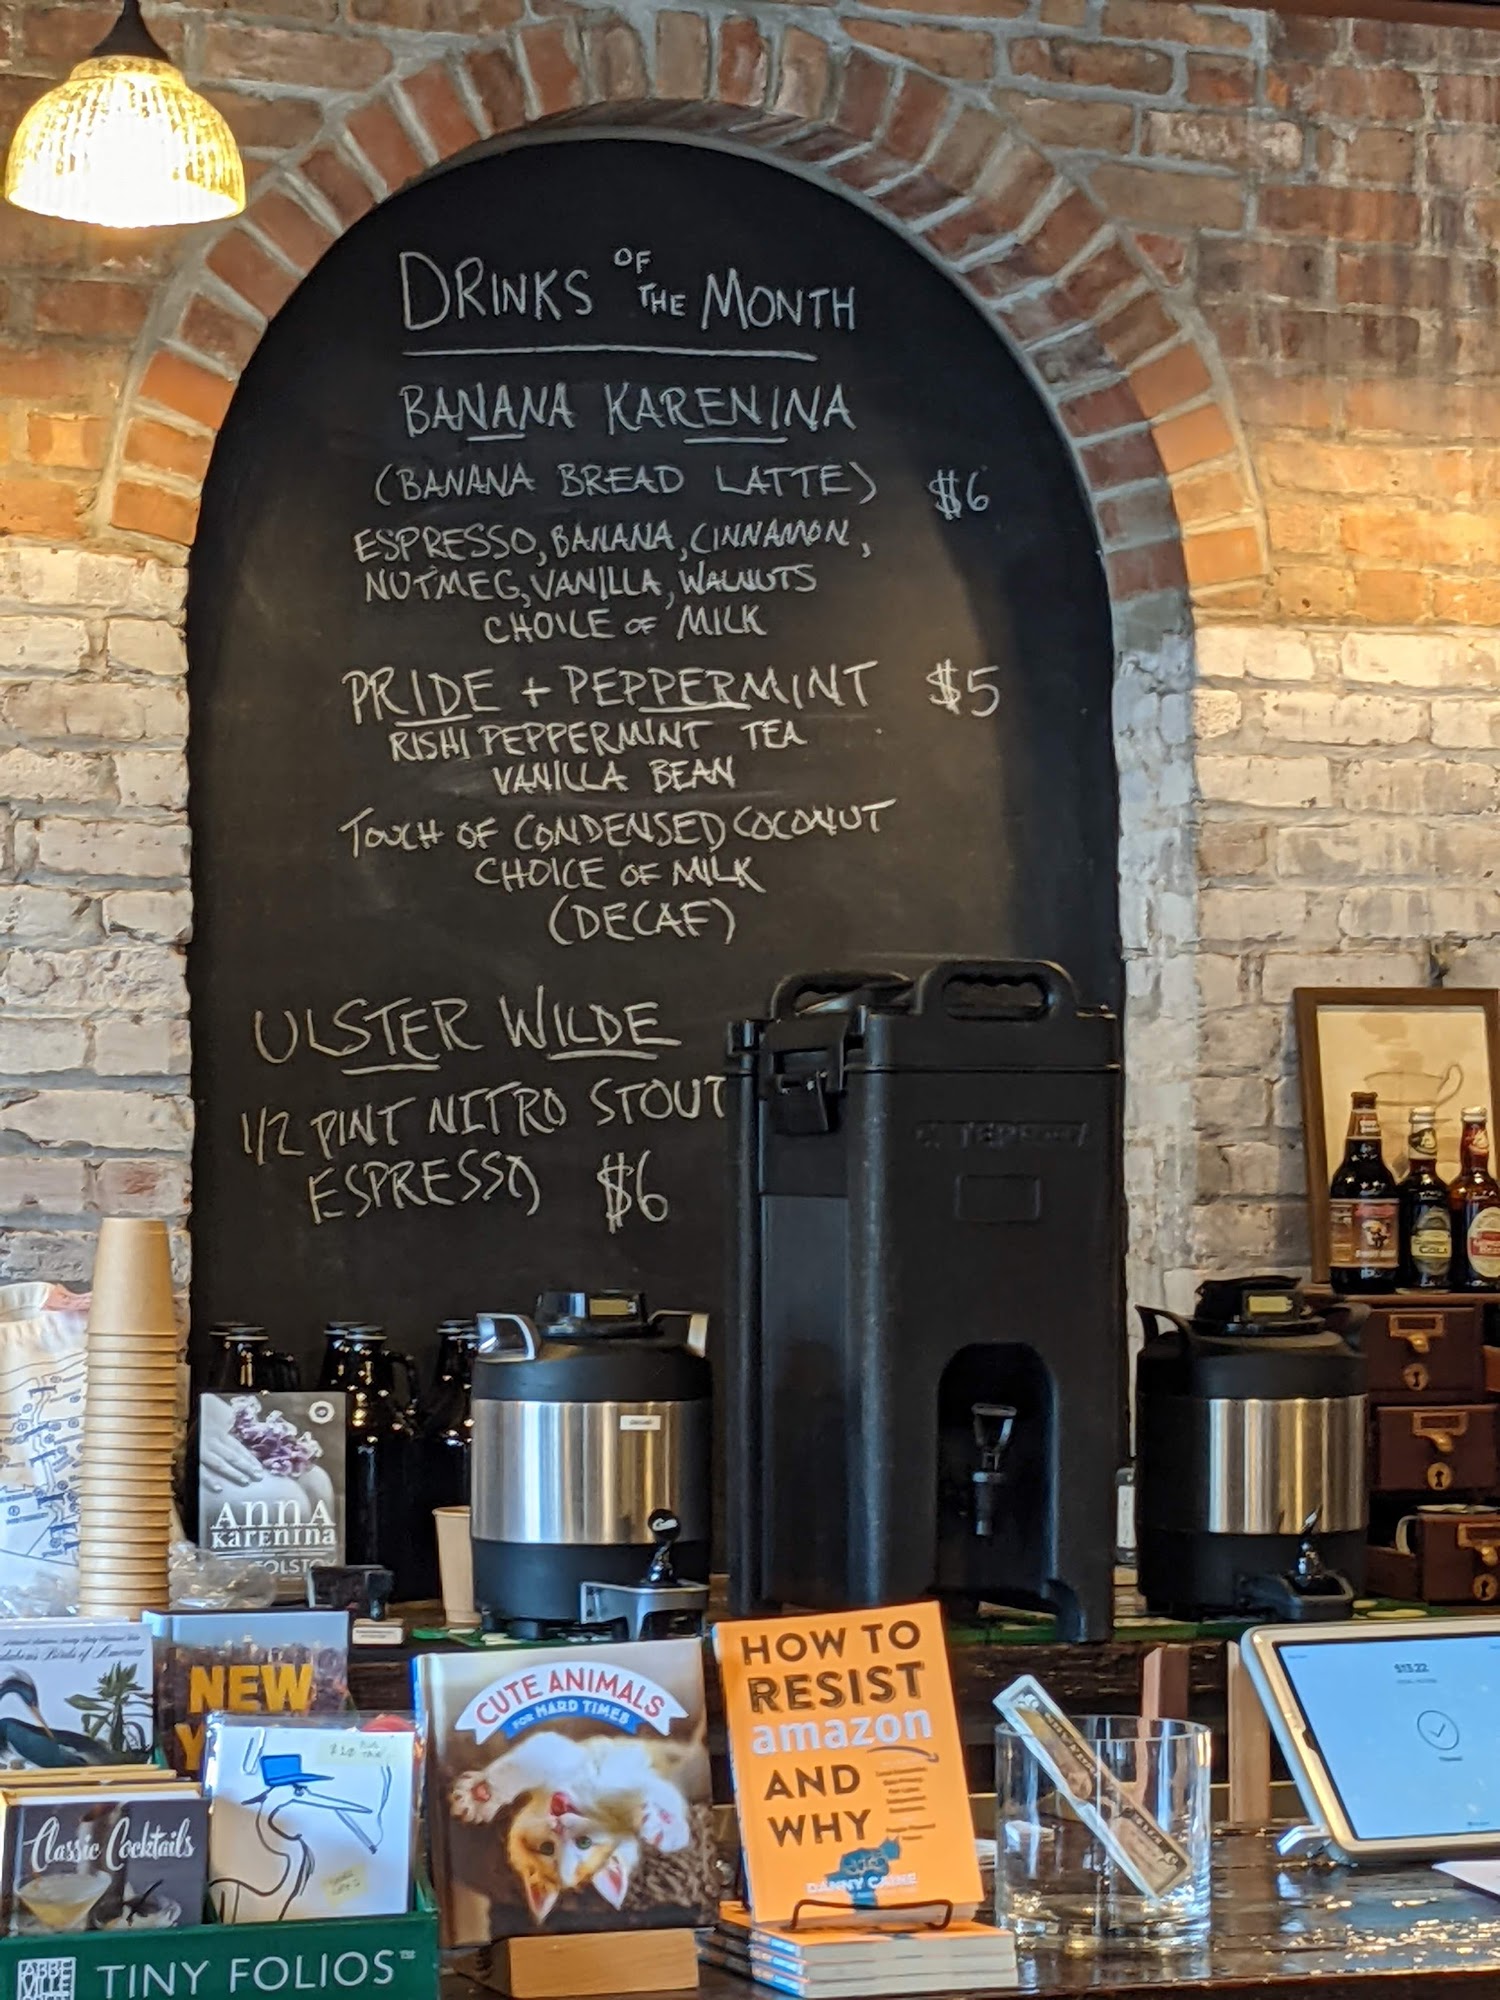 DRINKS OF THE MONTH
BANANA KARENINA
(BANANA BREAD LATTE) $6
ESPRESSO, BANANA, CINNAMON,
NUTMEG, VANILLA, WALNUTS
CHOICE OF MILK
PRIDE + PEPPERMINT $5
RISHI PEPPERMINT TEA
VANILLA BEAN
TOUCH OF CONDENSED COCONUT
CHOICE OF MILK
(DECAF)
ULSTER WILDE
1/2 PINT NITRO STOUT
ESPRESSO $6
ANNA
KARENINA
TOLSTOY
Birds of America
NEW
CUTE ANIMALS
FOR HARD TIMES
HOW TO
RESIST
amazon
AND
WHY
DANNY CAINE
Classic Cocktails
ABBE
VILLE
TINY FOLIOS™
COLA
$13.22